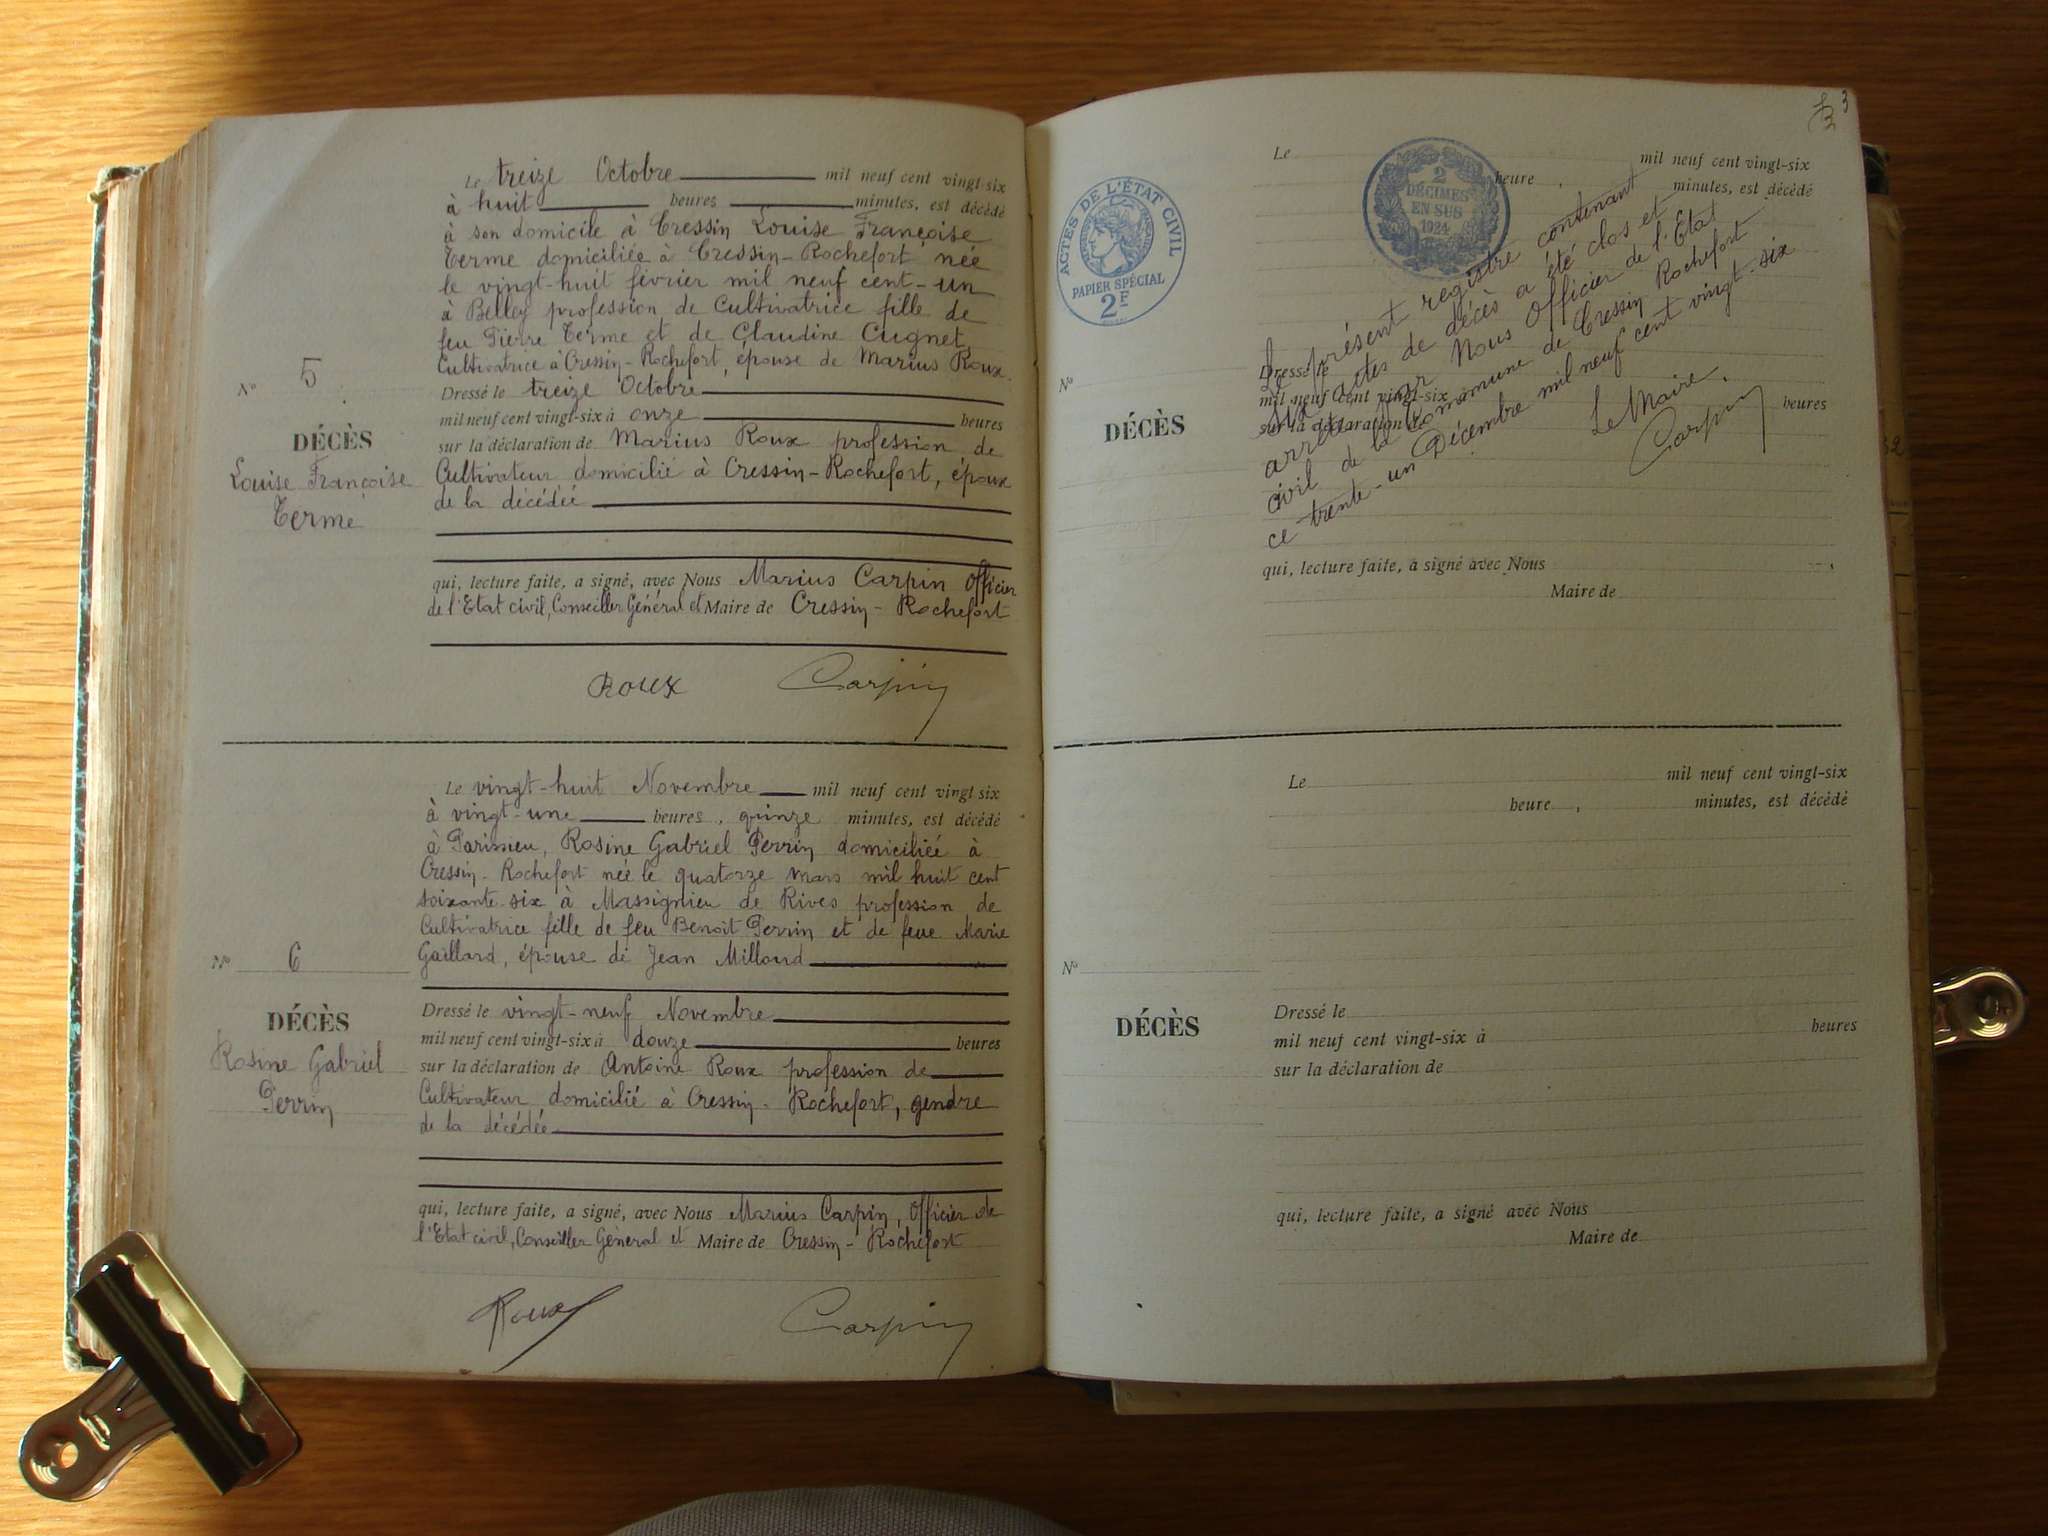 Le treize Octobre mil neuf cent vingt-six
à huit heures minutes, est décédé
à son domicile à Cressin Louise Françoise
Terme domiciliée à Cressin-Rochefort née
le vingt-huit février mil neuf cent-un
à Belley profession de Cultivatrice fille de
feu Pierre Terme et de Claudine Cugnet,
Cultivatrice à Cressin-Rochefort, épouse de Marius Roux.
N° 5
Dressé le treize Octobre
mil neuf cent vingt-six à onze heures
DÉCÈS
sur la déclaration de Marius Roux profession de
Louise Françoise
Cultivateur domicilié à Cressin-Rochefort, époux
Terme
de la décédée
qui, lecture faite, a signé, avec Nous Marius Carpin Officier
de l'Etat civil, Conseiller Général et Maire de Cressin-Rochefort
Roux Carpin
Le vingt-huit Novembre mil neuf cent vingt-six
à vingt-une heures, quinze minutes, est décédé
à Parissieu, Rosine Gabriel Perrin domiciliée à
Cressin-Rochefort née le quatorze mars mil huit cent
soixante-six à Massignieu de Rives profession de
Cultivatrice fille de feu Benoit Perrin et de feue Marie
Gaillard, épouse de Jean Milloud
N° 6
Dressé le vingt-neuf Novembre
DÉCÈS
mil neuf cent vingt-six à douze heures
Rosine Gabriel
sur la déclaration de Antoine Roux profession de
Perrin
Cultivateur domicilié à Cressin-Rochefort, gendre
de la décédée
qui, lecture faite, a signé, avec Nous Marius Carpin, Officier de
l'Etat civil, Conseiller Général et Maire de Cressin-Rochefort
Roux Carpin
3
ACTES DE L'ÉTAT CIVIL
PAPIER SPÉCIAL
2F
2
DÉCIMES
EN SUS
1924
Le mil neuf cent vingt-six
heure, minutes, est décédé
Le présent registre contenant
actes de décès a été clos et
arrêté par Nous Officier de l'Etat
civil de la Commune de Cressin Rochefort
ce trente-un Décembre mil neuf cent vingt-six
Le Maire,
Carpin
N°
DÉCÈS
Dressé le
mil neuf cent vingt-six à heures
sur la déclaration de
qui, lecture faite, a signé avec Nous
Maire de
Le mil neuf cent vingt-six
heure, minutes, est décédé
N°
DÉCÈS
Dressé le
mil neuf cent vingt-six à heures
sur la déclaration de
qui, lecture faite, a signé avec Nous
Maire de